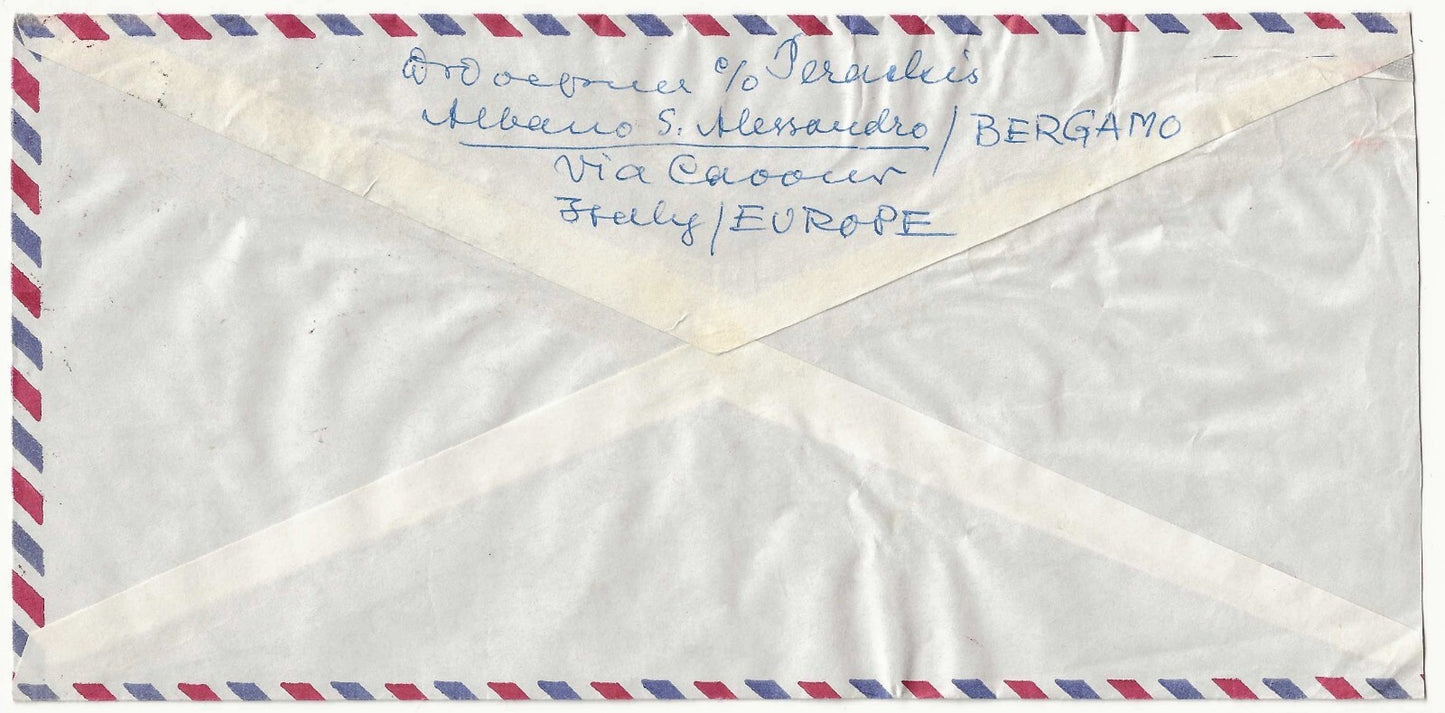 c/o
Albano S. Alessandro / BERGAMO
Via Cavour
Italy / EUROPE